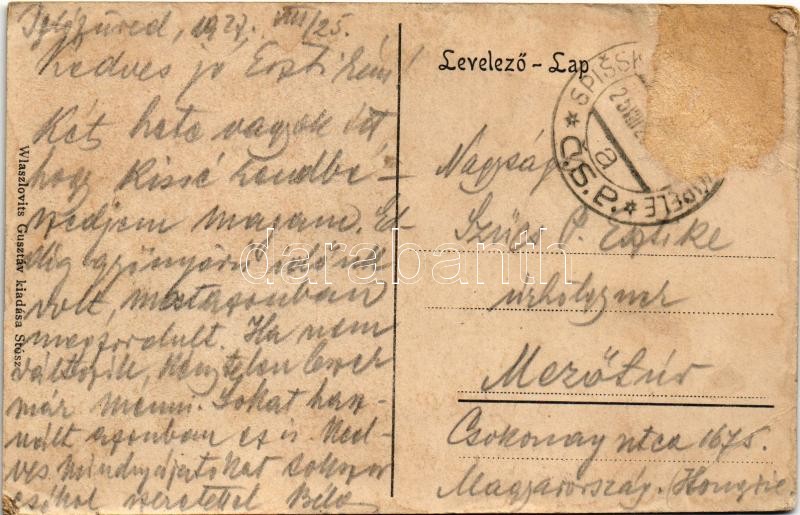 1927. VIII/25.
Kedves jó Esztikém!
Két hete vagyok itt
hogy kissé rendbe-
szedjem magam. Ed-
dig gyönyörű idő
volt, ma azonban
megfordult. Ha nem
változik, kénytelen leszek
már menni. Sokat hasz-
nált azonban ez is. Ked-
ves mindnyájatokat sokszor
csókol szeretettel Béla
Wlaszlovits Gusztáv kiadása Stósz
Levelező - Lap
SPIŠSK
Č.S.P.
a
Nagyság
Szűcs P. Esztike
úrhölgynek
Mezőtúr
Csokonay utca 1675.
Magyarország. (Hongrie
darabanth